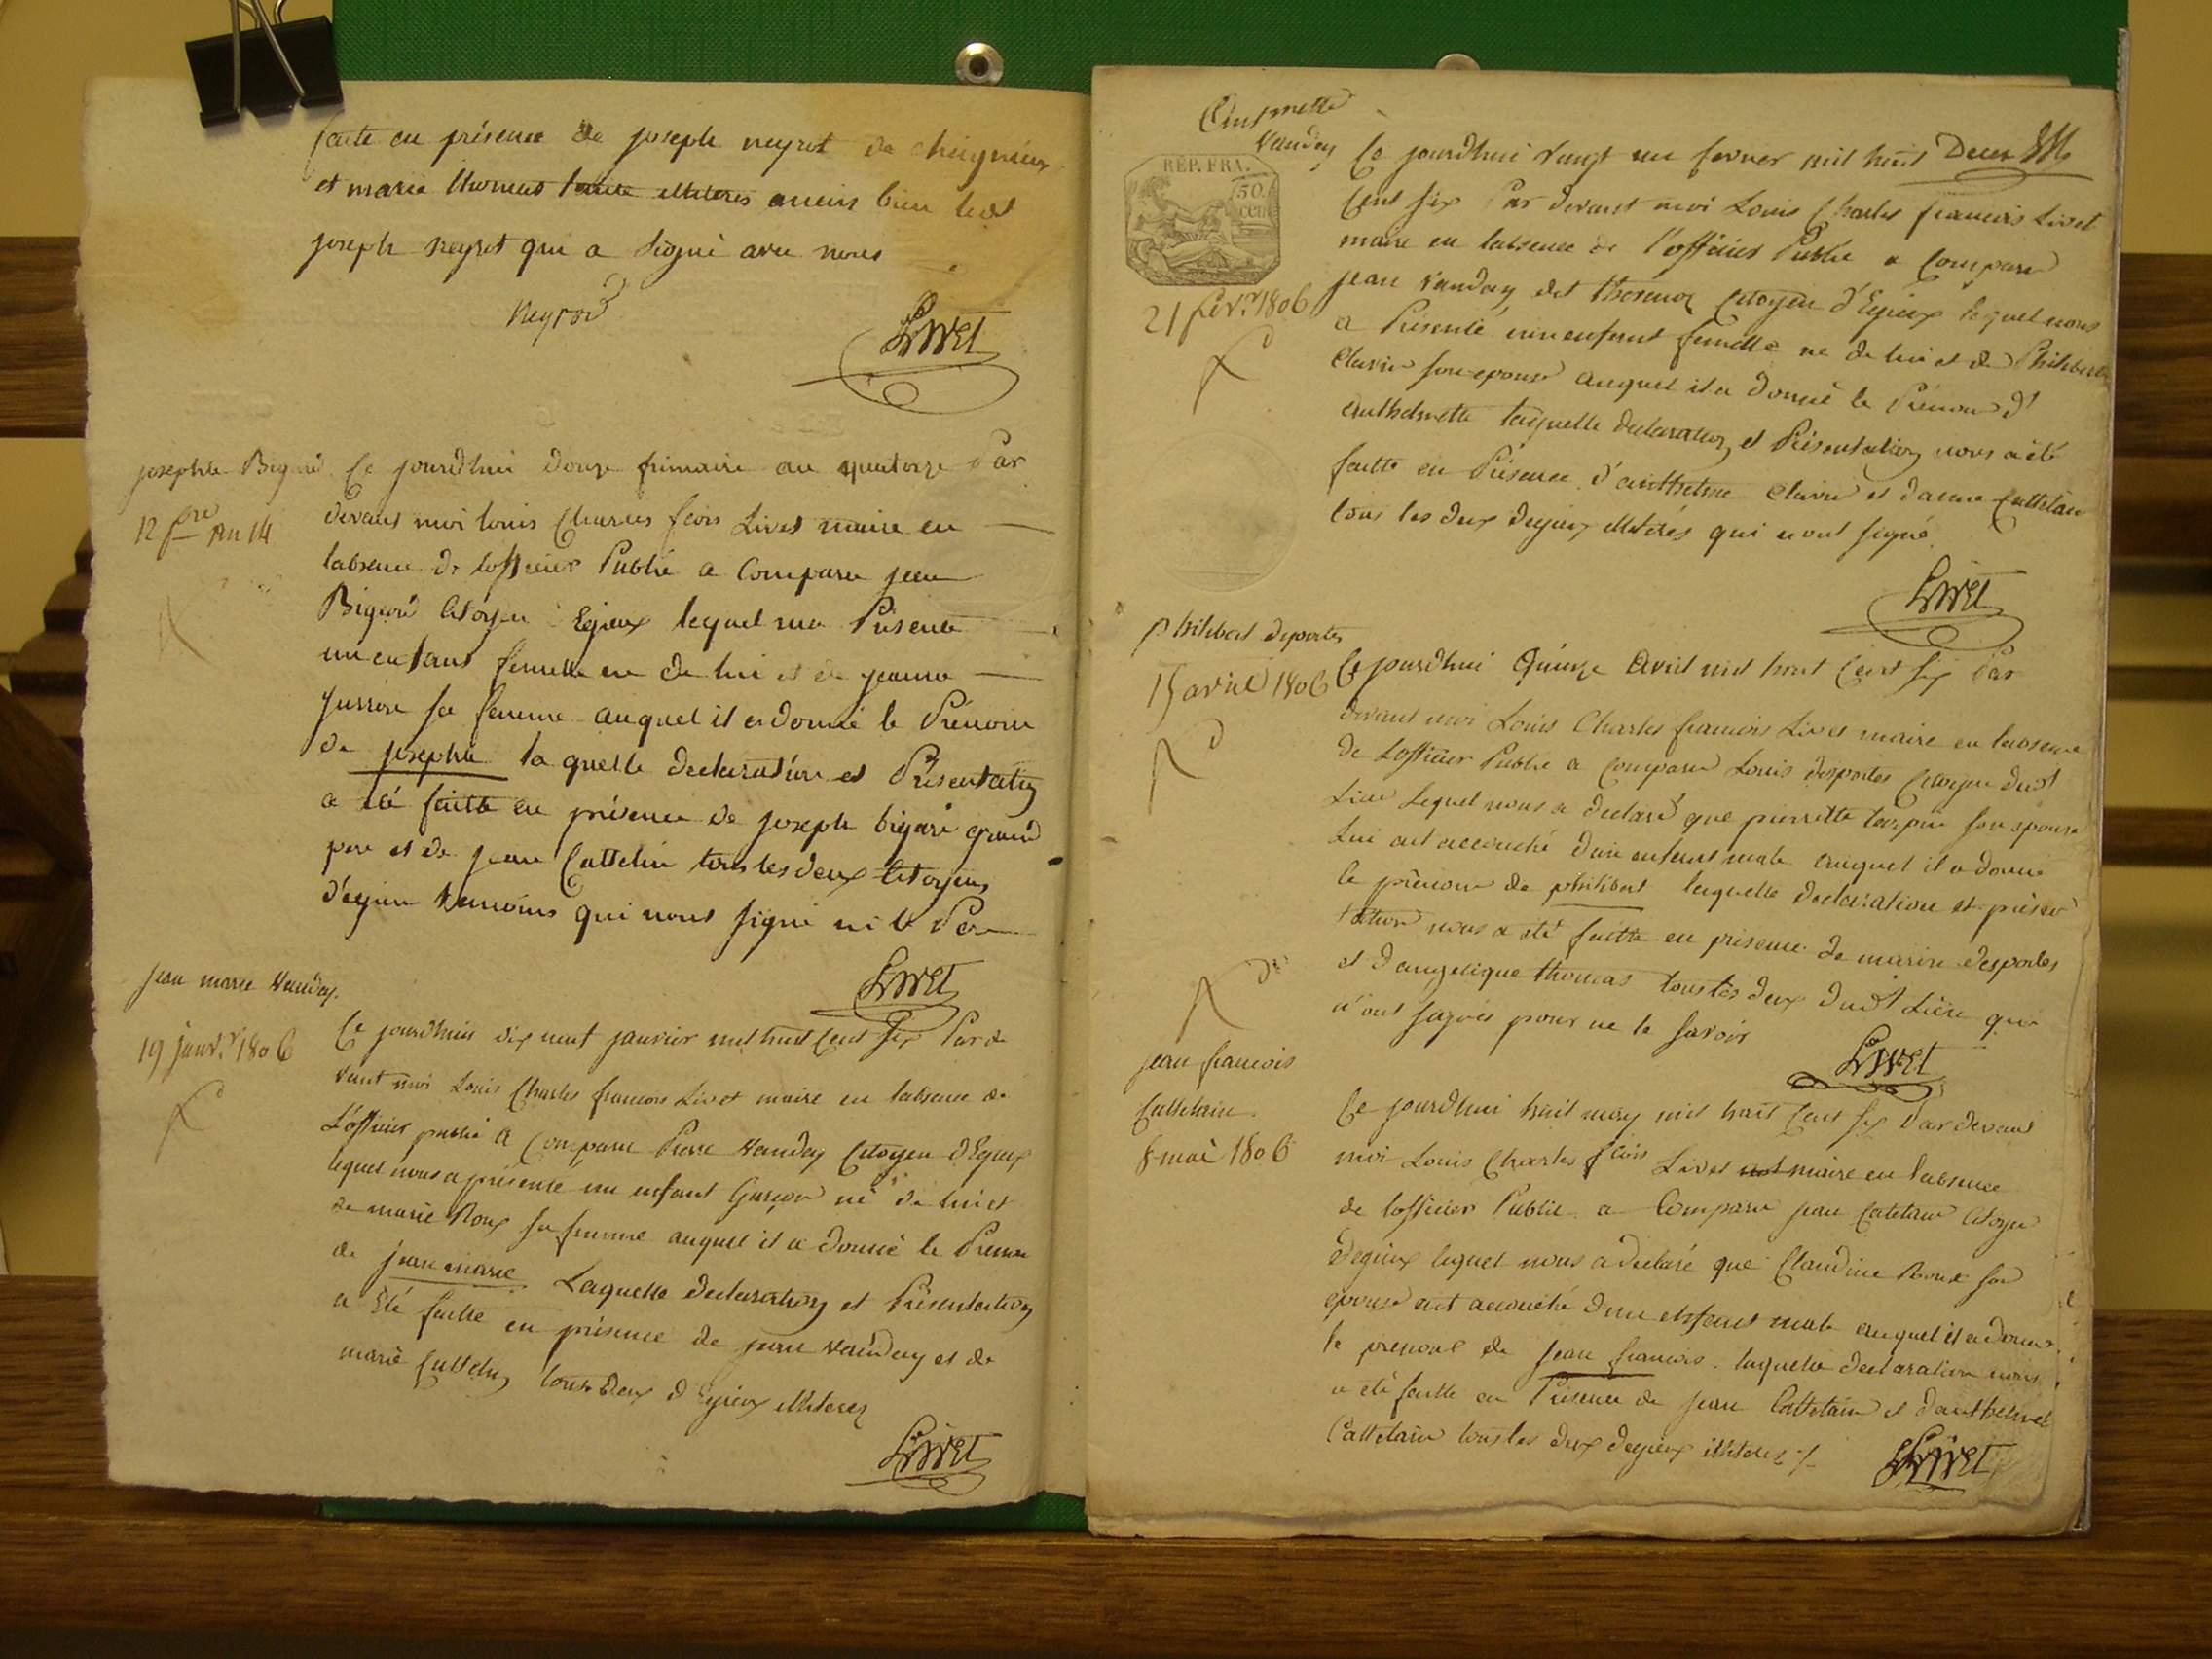 faite en présence de joseph neyrot de cheignieux
et marie thomas toute illiteres aucuns bien ledt
joseph neyrot qui a signé avec nous
Neyrod
Livet
josephte Bigué
12 fre An 14
Ce jourdhui douze frimaire an quatorze Par
devant moi louis Charles fcois Livet maire en
labsence de lofficier Public a Comparu jean
citoyen Egieux lequel ma Présenté
un enfant femelle né de lui et de jeanne
sa femme auquel il a donné le Prénom
de josephte la quelle declaration et Présentation
a été faitte en présence de joseph bigaré grand
pere et de jean Cattelin tous les deux Citoyens
d'egieu temoins qui nont signé ni le Pere
Livet
jean marie Vauday.
19 janv.r 1806
Ce jourdhuis dix neuf janvier mil huit Cent six Par de
vant moi Louis Charles francois Livet maire en labsence de
L'officier public A Comparu Pierre Vauday Citoyen d'Egieux
lequel nous a présenté un enfant Garçon né de lui et
de marie Roux sa femme auquel il a donné le Prenom
de jean marie Laquelle declaration et Présentation
a été faitte en présence de jean vauday et de
marie Cattelin tous deux d'Egieux illiteres
Livet
Vauday
REP. FRA.
50.
cen
21 fév.r 1806
Ce jourdhui vingt un fevrier mil huit
Cent six Par devant moi Louis Charles francois Livet
maire en labsence de l'officier Public a Comparu
jean Vauday dit Citoyen d'Egieux lequel nous
a Présenté un enfant femelle né de lui et de Philiberte
Clavié son epouse auquel il a donné le Prénom d'
Anthelmette laquelle declaration et Présentation nous a été
faitte en Présence d'anthelme Clavié et danne Cattelain
tous les deux degieux illiterés qui n'ont signé
Livet
Philibert desportes
15 avril 1806
Ce jourdhui Quinze Avril mil huit Cent six Par
devant moi Louis Charles francois Livet maire en labsence
de Lofficier Public a Comparu Louis desportes Citoyen dudt
Lieu Lequel nous a declaré que pierrette son epouse
Lui ait accouché d'un enfant male auquel il a donné
le prénom de philibert laquelle declaration et présen
tation nous a été faitte en présence de marin desportes
et d'angelique thomas tous les deux dudt Lieu qui
n'ont signés pour ne le savoir
Livet
jean francois
Cattelain
8 mai 1806
Ce jourdhui huit may mil huit Cent six Par devant
moi Louis Charles fcois Livet maire en l'absence
de lofficier Public a Comparu jean Cattelain Citoyen
d'egieux lequel nous a declaré que Claudine Roux son
epouse ait accouché d'un enfant male auquel il a donné
le prenom de jean francois. laquelle declaration nous
a été faitte en Présence de jean Cattelain et d'anthelme
Cattelain tous les deux degieux illiteres
Livet